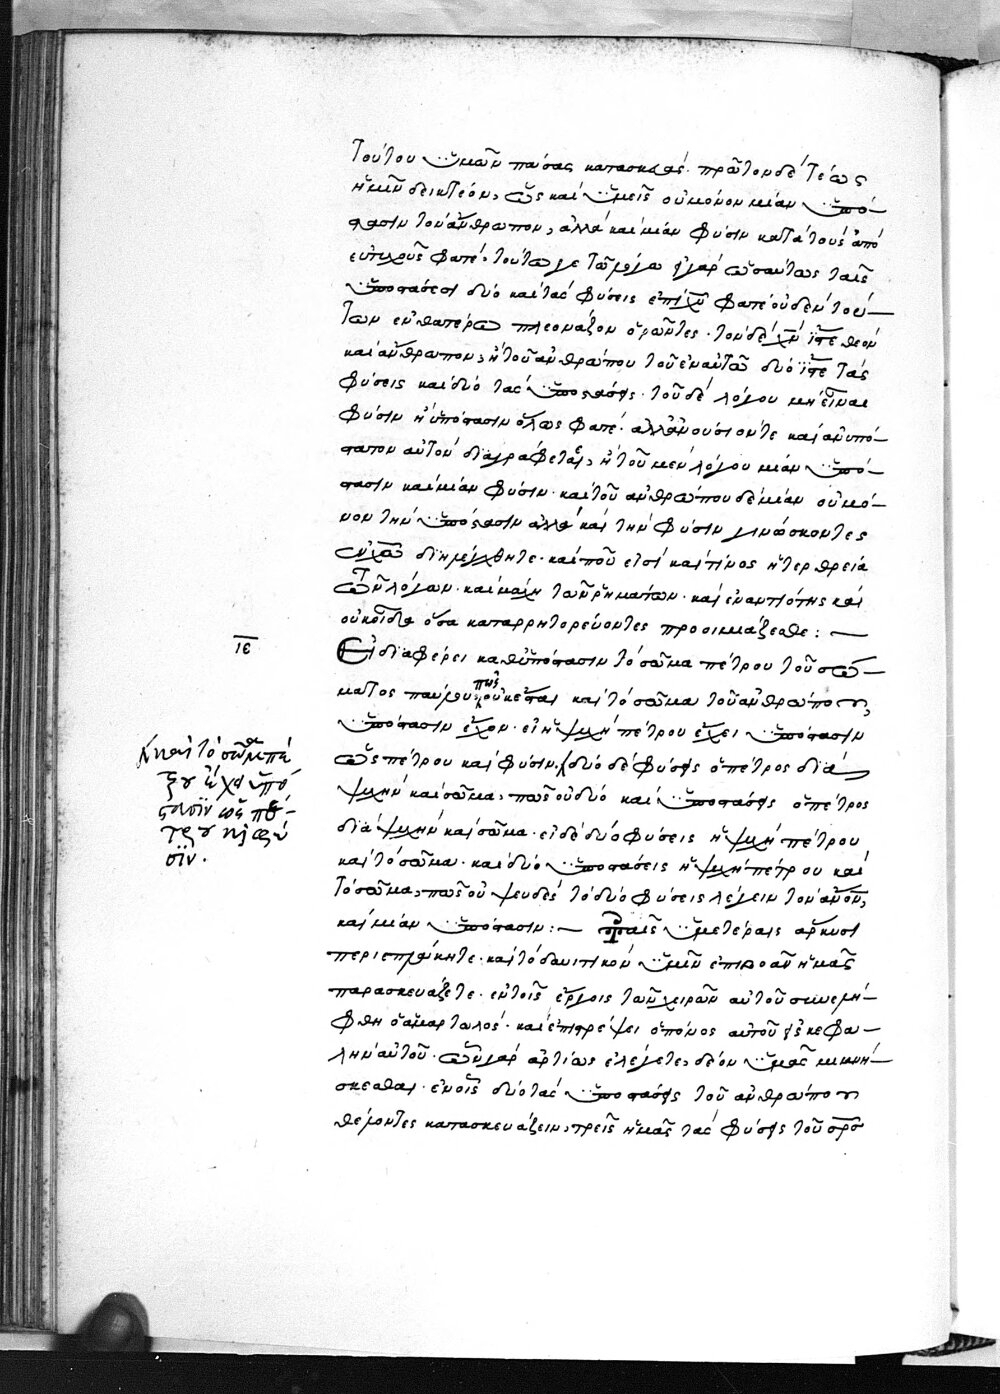 τούτου ὑμῶν πάσας κατασκευάς· πρῶτον δὲ τέως
ἡμῖν δεικτέον, ὡς καὶ ὑμεῖς οὐ μόνον μίαν ὑπό-
στασιν τὸν ἄνθρωπον, ἀλλὰ καὶ μίαν φύσιν κατὰ τοὺς ἀπὸ
εὐτυχοῦς φατέ· τούτω γε τῶ λόγω γὰρ ὡσαύτως ταῖς
ὑποστάσεσι δύο καὶ τὰς φύσεις ἐπὶ χῦ φατὲ οὐδὲν τού-
των ἐν θατέρω πλεονάζον ὁρῶντες· τὸν δὲ χν ἴστε θεὸν
καὶ ἄνθρωπον, ἢ τοῦ ἀνθρώπου τοῦ ἐν αὐτῶ δύο ἴστε τὰς
φύσεις καὶ δύο τὰς ὑποστάσεις· τοῦ δὲ λόγου μὴ εἶναι
φύσιν ἢ ὑπόστασιν ὅλως φατέ· ἀλλ' ἀνούσιόν τε καὶ ἀνυπό-
στατον αὐτὸν διαγράφετε, ἢ τοῦ μὲν λόγου μίαν ὑπό-
στασιν καὶ μίαν φύσιν· καὶ τοῦ ἀνθρώπου δὲ μίαν οὐ μό-
νον τὴν ὑπόστασιν ἀλλὰ καὶ τὴν φύσιν γινώσκοντες
διηλέγχθητε· καὶ ποῦ εἰσὶ καὶ τίνος ἡ τερθρεία
τῶν λόγων· καὶ μάχη τῶν ῥημάτων· καὶ ἐναντιότης καὶ
οὐκ οἶδα ὅσα καταρρητορεύοντες προσιμάξεσθε: —
ιε
Εἰ διαφέρει καθ' ὑπόστασιν τὸ σῶμα πέτρου τοῦ σώ-
ματος παύλου πῶς οὐκ ἔσται καὶ τὸ σῶμα τοῦ ἀνθρώπου,
ὑπόστασιν ἔχον· εἰ ἡ ψυχὴ πέτρου ἔχει ὑπόστασιν
ὡς πέτρου καὶ φύσιν, δύο δὲ φύσεις ὁ πέτρος διὰ
ψυχὴν καὶ σῶμα, πῶς οὐ δύο καὶ ὑποστάσεις ὁ πέτρος
διὰ ψυχὴν καὶ σῶμα· εἰ δὲ δύο φύσεις ἡ ψυχὴ πέτρου
καὶ τὸ σῶμα· καὶ δύο ὑποστάσεις ἡ ψυχὴ πέτρου καὶ
τὸ σῶμα, πῶς οὐ ψευδὲς τὸ δύο φύσεις λέγειν τὸν ἄνον,
καὶ μίαν ὑπόστασιν: — ταῖς ὑμετέραις ἄρκυσι
περιεπλάκητε· καὶ τὸ δαυιτικὸν ὑμῖν ἐπιβοᾶν ἡμᾶς
παρασκευάζετε· ἐν τοῖς ἔργοις τῶν χειρῶν αὐτοῦ συνελή-
φθη ὁ ἁμαρτωλός· καὶ ἐπιστρέψει ὁ πόνος αὐτοῦ εἰς κεφα-
λὴν αὐτοῦ· ὧν γὰρ ἀρτίως ἐλέγετε, δέον ὑμᾶς μιμνή-
σκεσθαι· ἐν οἷς δύο τὰς ὑποστάσεις τοῦ ἀνθρώπου
θέμοντες κατασκευάζειν, τρεῖς ἡμᾶς τὰς φύσεις τοῦ σρσ
καὶ τὸ σῶμα πέ
τρου ἔχει ὑπό
στασιν ὡς πέ-
τρου κ φύ
σιν.